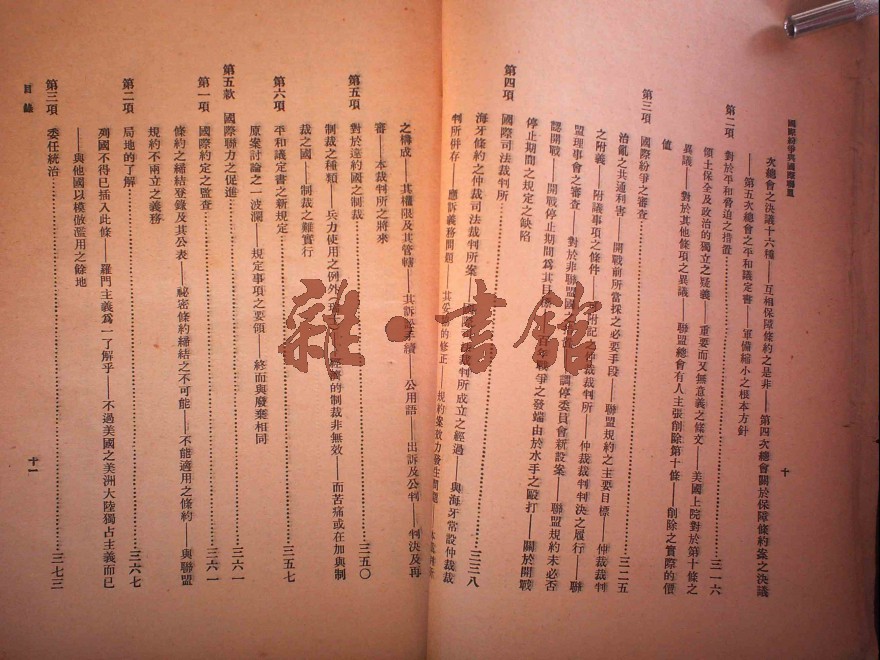 國際紛爭與國際聯盟
十
次總會之決議十六種——互相保障條約之是非——第四次總會關於保障條約案之決議
——第五次總會之平和議定書——軍備縮小之根本方針
第二項 對於平和脅迫之措置…………三一六
領土保全及政治的獨立之疑義——重要而又無意義之條文——美國上院對於第十條之
異議——對於其他條項之異議——聯盟總會有人主張削除第十條——削除之實際的價
值
第三項 國際紛爭之審查…………三二五
治亂之共通利害——開戰前所當採之必要手段——聯盟規約之主要目標——仲裁裁判
之附義——附議事項之條件——附記之仲裁裁判所——仲裁裁判判決之履行——聯
盟理事會之審查——對於非聯盟國之 調停委員會新設案——聯盟規約未必否
認開戰——開戰停止期間爲其目 戰爭之發端由於水手之毆打——關於開戰
停止期間之規定之缺陷
第四項 國際司法裁判所…………三三八
海牙條約之仲裁司法裁判所案—— 裁判所成立之經過——與海牙常設仲裁裁
判所併存——應訴義務問題——其 的修正——規約案效力發生問題
之構成——其權限及其管轄——其訴訟手續——公用語——出訴及公判——判決及再
審——本裁判所之將來
第五項 對於違約國之制裁…………三五〇
制裁之種類——兵力使用之例外 經濟的制裁非無效——而苦痛或在加與制
裁之國——制裁之難實行
第六項 平和議定書之新規定…………三五七
原案討論之一波瀾——規定事項之要領——終而與廢棄相同
第五款 國際聯力之促進…………三六一
第一項 國際約定之監查…………三六一
條約之締結登錄及其公表——祕密條約締結之不可能——不能適用之條約——與聯盟
規約不兩立之義務
第二項 局地的了解…………三六七
列國不得已插入此條——羅門主義爲一了解乎——不過美國之美洲大陸獨占主義而已
——與他國以模倣濫用之餘地
第三項 委任統治…………三七三
目錄
十一
雜·書館